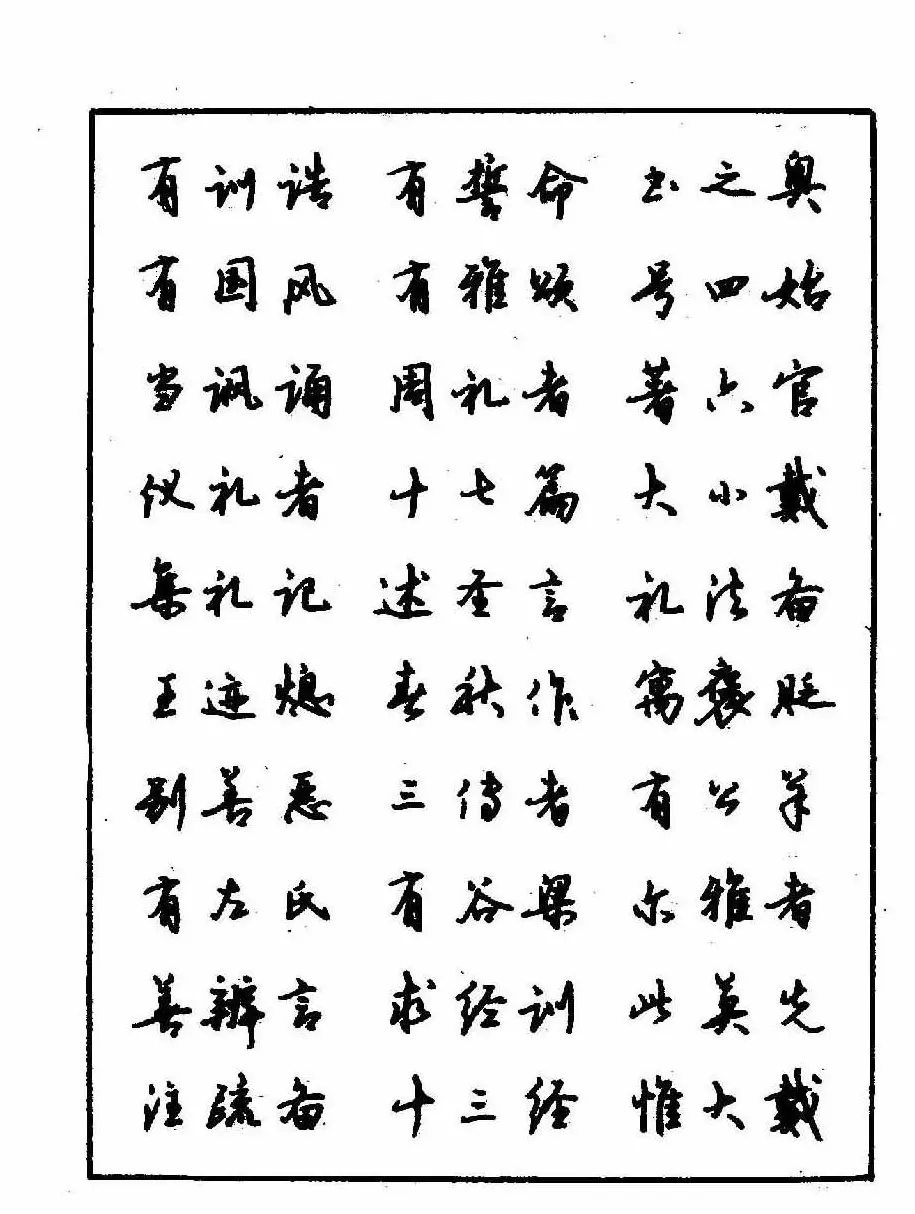 有训诰 有誓命 书之奥
有国风 有雅颂 号四始
当讽诵 周礼者 著六官
仪礼者 十七篇 大小戴
集礼记 述圣言 礼法备
王迹熄 春秋作 寓褒贬
别善恶 三传者 有公羊
有左氏 有谷梁 尔雅者
善辨言 求经训 此莫先
注疏备 十三经 惟大戴